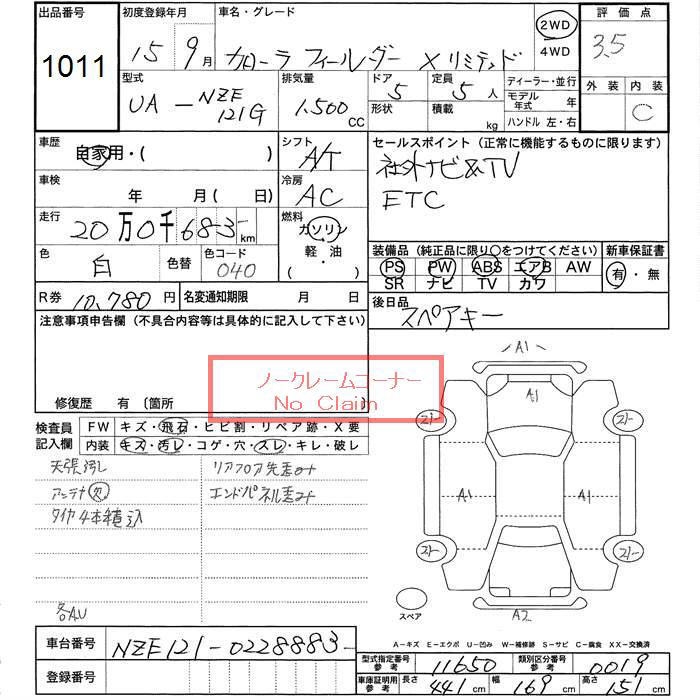 出品番号 初度登録年月 車名・グレード 2WD 評価点
1011 15年 9月 カローラ フィールダー Xリミテッド 4WD 3.5
型式 排気量 ドア 5 定員 5人 ディーラー・並行 外装 内装
UA-NZE121G 1.500 CC 形状 積載 kg モデル年式 年 C
ハンドル 左・右
車歴 自家用・( ) シフト A/T セールスポイント(正常に機能するものに限ります)
社外ナビ&TV
車検 年 月(日) 冷房 AC ETC
走行 20万0千683km 燃料 ガソリン
色 白 色替 色コード 040 軽・油 装備品(純正品に限り○をつけてください) 新車保証書
PS PW ABS エアB AW 有・無
SR ナビ TV カワ
R券 10,780円 名変通知期限 月 日 後日品
スペアキー
注意事項申告欄(不具合内容等は具体的に記入して下さい)
ノークレームコーナー
No Claim
修復歴 有〔箇所
検査員記入欄 FW キズ・飛石・ヒビ割・リペア跡・X要
内装 キズ・汚レ・コゲ・穴・スレ・キレ・破レ
天張汚し リアフロア先走at
アンテナ欠 エンドパネル走at
タイヤ4本積込
各AU
A1
A1
A1 A1
A2
スペア
A-キズ E-エクボ U-凹み W-補修跡 S-サビ C-腐食 XX-交換済
車台番号 NZE121-0228883-
型式指定番号 参考 11650 類別区分番号 参考 0019
登録番号 車庫証明用 参考 長さ 441cm 幅 169cm 高さ 151cm